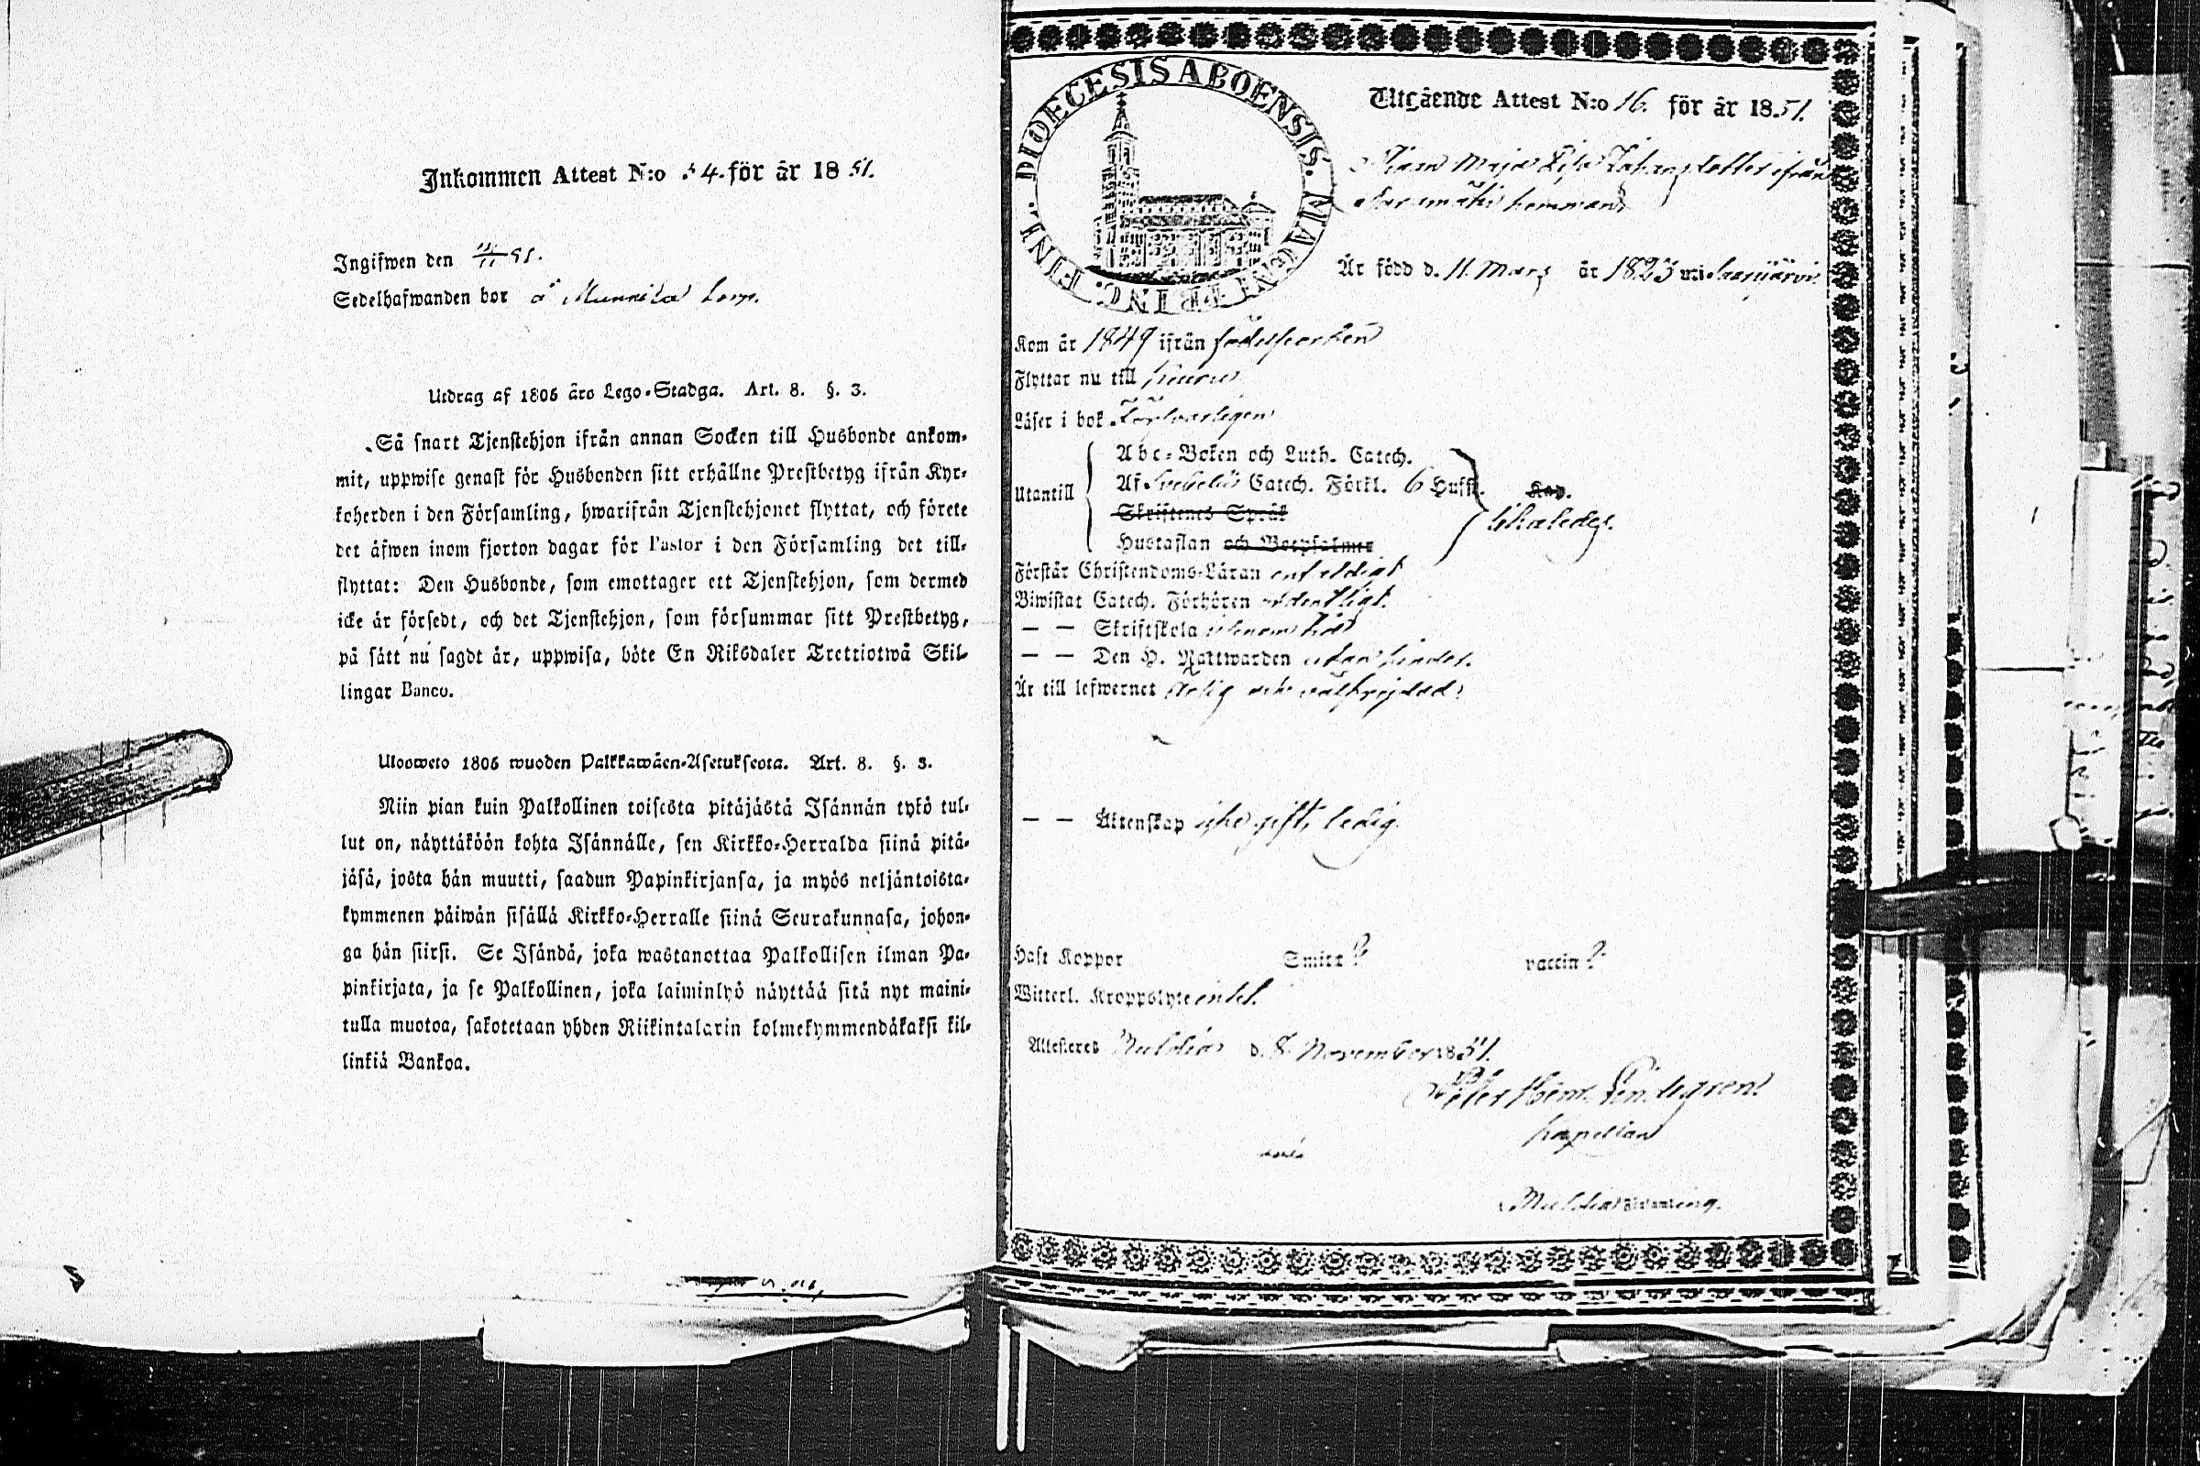 Inkommen Attest N:o 54. för år 1851.
Ingifwen den 14/11 51.
Sedelhafwanden bor å Munnika torp.
Utdrag af 1805 års Lego-Stadga. Art. 8. §. 3.
Så snart Tjenstehjon ifrån annan Socken till Husbonde ankom-
mit, uppwise genast för Husbonden sitt erhållne Prestbetyg ifrån Kyr-
koherden i den Församling, hwarifrån Tjenstehjonet flyttat, och förete
det äfwen inom fjorton dagar för Pastor i den Församling det till-
flyttat: Den Husbonde, som emottager ett Tjenstehjon, som dermed
icke är försedt, och det Tjenstehjon, som försummar sitt Prestbetyg,
på sätt nu sagdt är, uppwisa, böte En Riksdaler Trettiotwå Skil-
lingar Banco.
Ulosweto 1805 wuoden Palkkawäen-Asetuksesta. Art. 8. §. 3.
Niin pian kuin Palkollinen toisesta pitäjästä Isännän tykö tul-
lut on, näyttäköön kohta Isännälle, sen Kirkko-Herralda siinä pitä-
jäsä, josta hän muutti, saadun Papinkirjansa, ja myös neljäntoista-
kymmenen päiwän sisällä Kirkko-Herralle siinä Seurakunnasa, johon-
ga hän siirsi. Se Isändä, joka wastanottaa Palkollisen ilman Pa-
pinkirjata, ja se Palkollinen, joka laiminlyö näyttää sitä nyt maini-
tulla muotoa, sakotetaan yhden Riikintalarin kolmekymmendäkaksi kil-
linkiä Bankoa.
DIOECESIS ABOENSIS. MAGNI PRINC. FINL.
Utgående Attest N:o 16. för år 1851.
Maja Lisa Johansdotter ifrån
hemman
Är född d. 11. Mars år 1823 uti Saarijärvi
Kom år 1849 ifrån födelseorten
Flyttar nu till Keuru
Läser i bok Försvarligen
Utantill
Abc-Boken och Luth. Catech.
Af Svebelii Catech. Förkl. 6 Hufst. Kap.
Skriftenes Språk
Hustaflan och Botpsalmer
Förstår Christendoms-Läran enfaldigt
Biwistat Catech. Förhören ordentligt.
— — Skriftskola
— — Den H. Nattwarden utan hinder.
Är till lefwernet ärlig och välfrejdad.
— — Äktenskap icke gift, ledig.
Haft Koppor Smitt? vaccin?
Witterl. Kroppslyte intet.
Attesteras Multia d. 8. November 1851.
Peter Hinr. Lindegren
kapellan
Multia Församling.